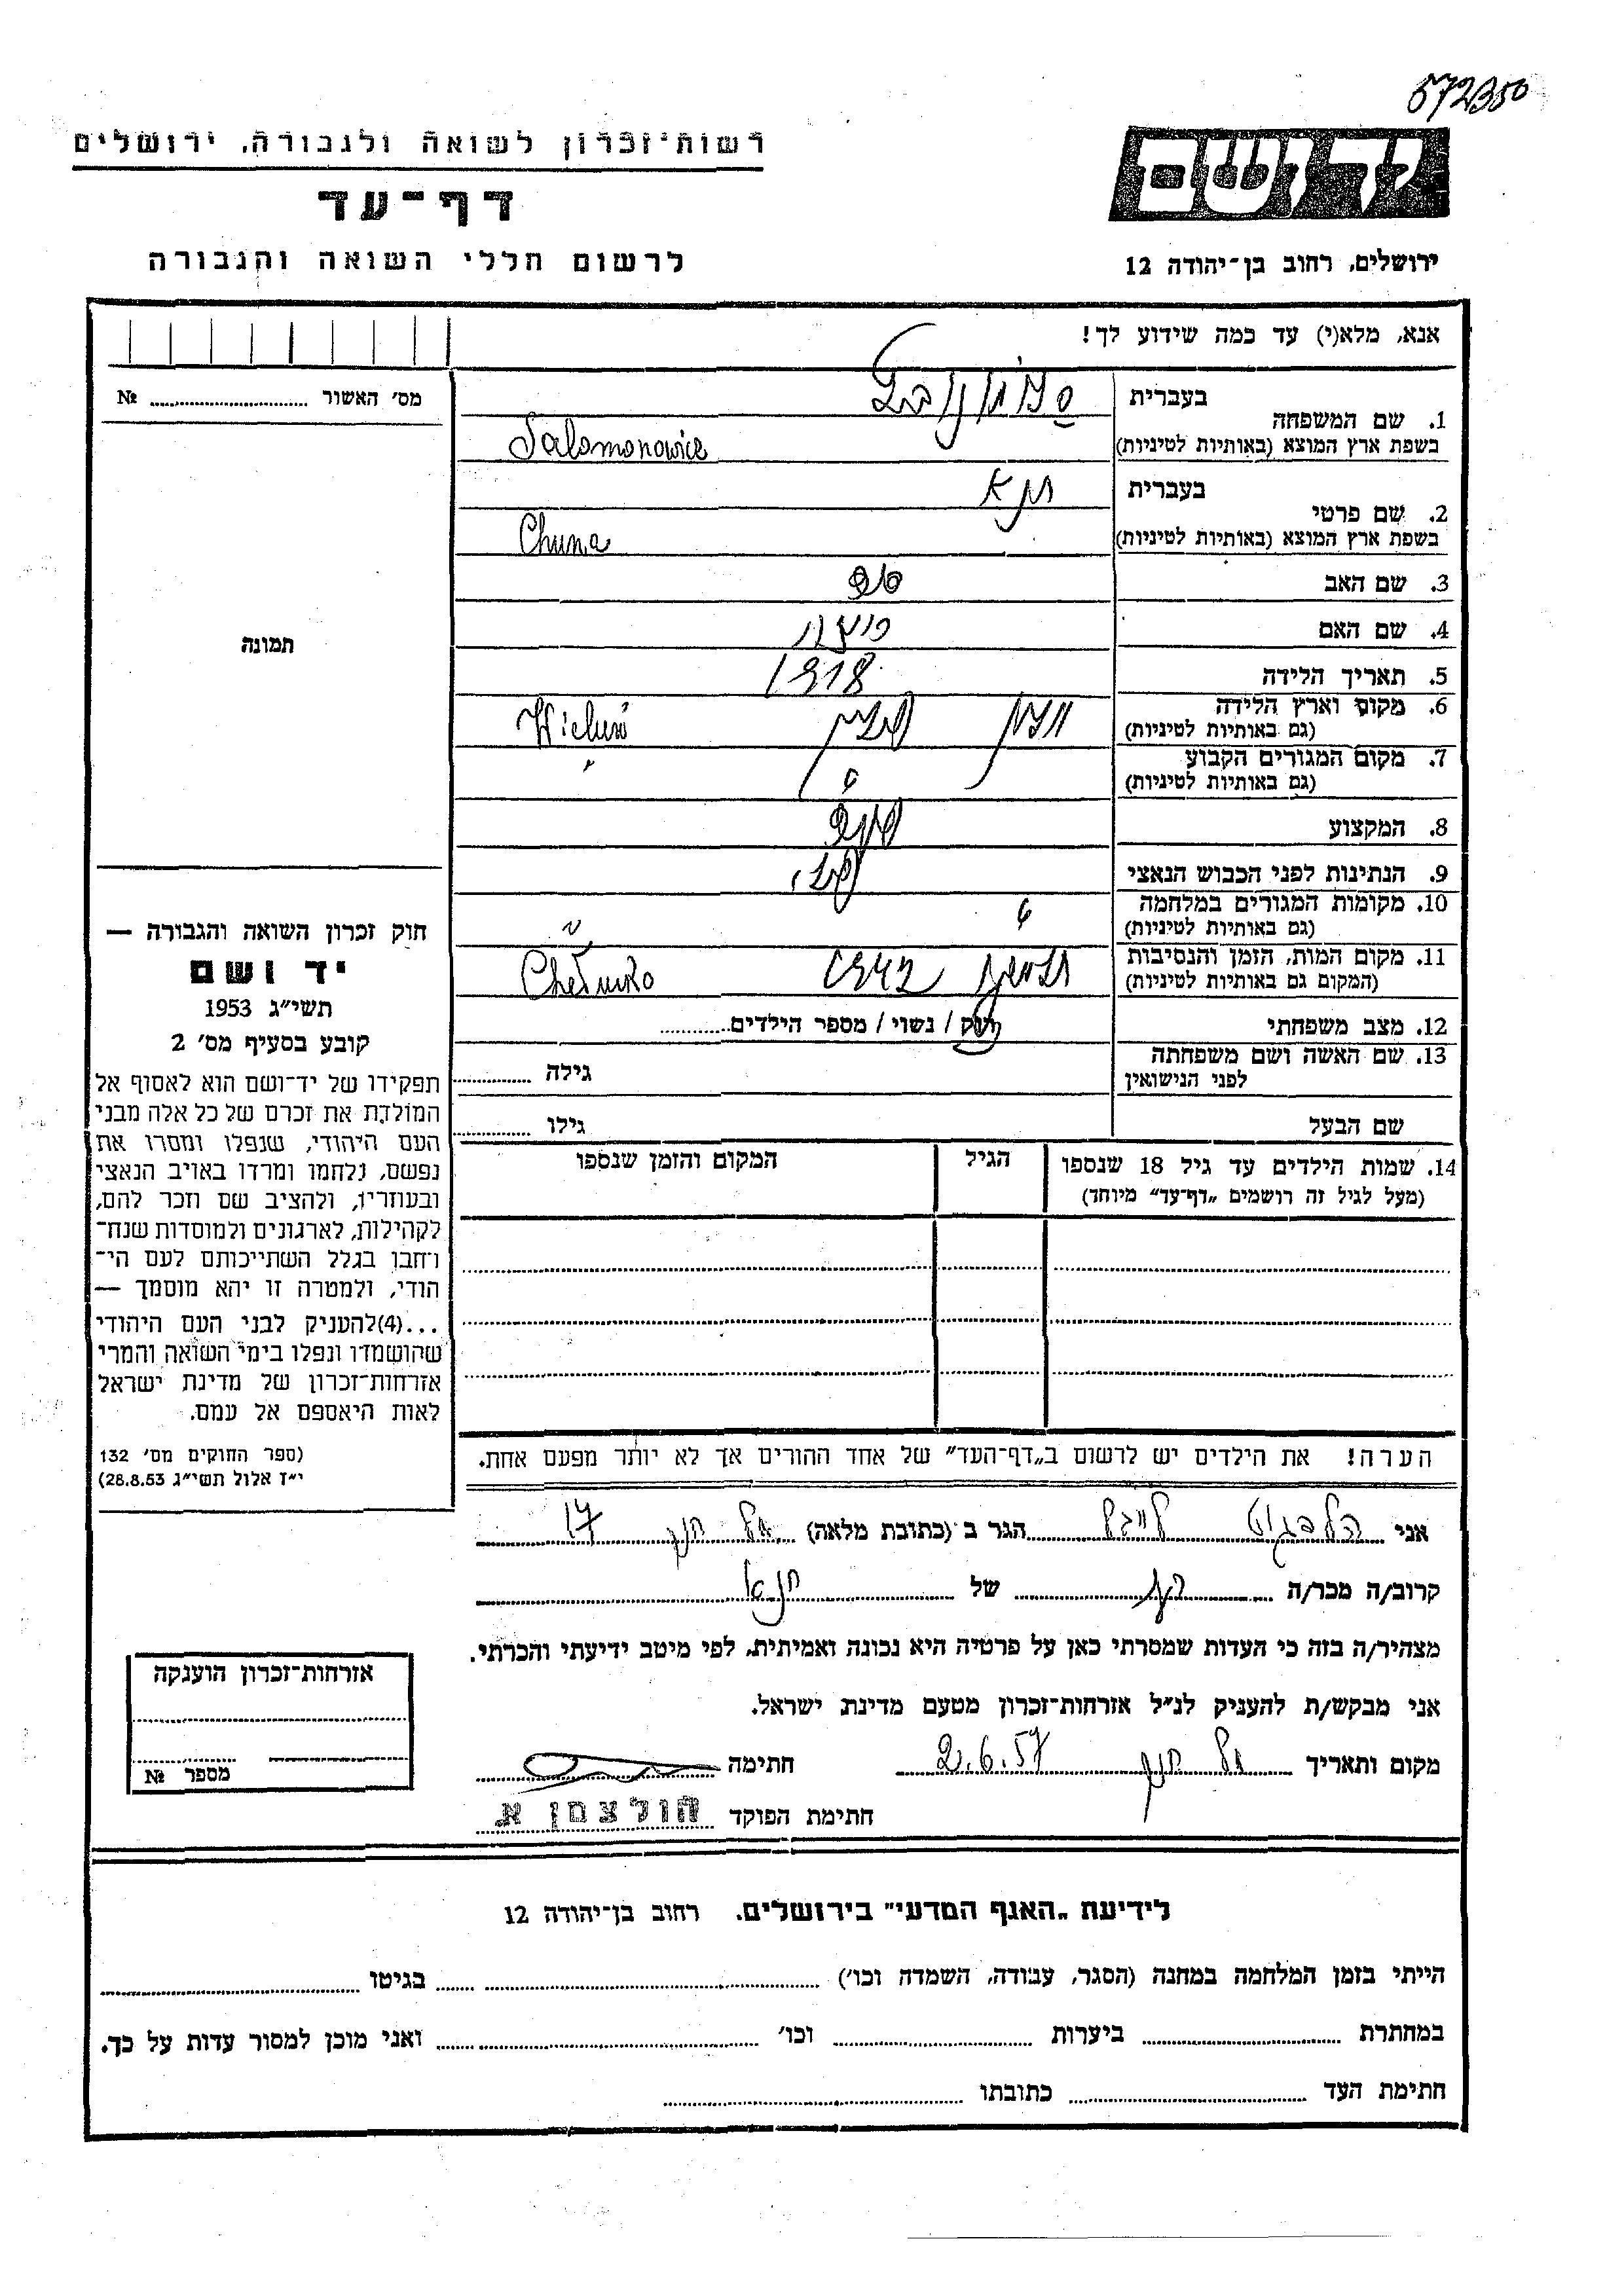 572350
רשות־זכרון לשואה ולגבורה, ירושלים
דף־עד
לרשום חללי השואה והגבורה
יד ושם
ירושלים, רחוב בן־יהודה 12
אנא, מלא(י) עד כמה שידוע לך!
מס׳ האשור № 
1. שם המשפחה
בעברית
בשפת ארץ המוצא (באותיות לטיניות) Salomonowicz
2. שם פרטי
בעברית חנא
בשפת ארץ המוצא (באותיות לטיניות) Chuna
3. שם האב
4. שם האם
5. תאריך הלידה 1918
6. מקום וארץ הלידה (גם באותיות לטיניות) וילון פולין Wieluń
7. מקום המגורים הקבוע (גם באותיות לטיניות) "
8. המקצוע
9. הנתינות לפני הכבוש הנאצי פולני
10. מקומות המגורים במלחמה (גם באותיות לטיניות) "
11. מקום המות, הזמן והנסיבות (המקום גם באותיות לטיניות) חלמנו 1942 Chełmno
12. מצב משפחתי רווק / נשוי / מספר הילדים
13. שם האשה ושם משפחתה לפני הנישואין גילה
שם הבעל גילו
14. שמות הילדים עד גיל 18 שנספו (מעל לגיל זה רושמים „דף־עד״ מיוחד)
הגיל
המקום והזמן שנספו
הערה! את הילדים יש לרשום ב„דף־העד״ של אחד ההורים אך לא יותר מפעם אחת.
תמונה
חוק זכרון השואה והגבורה —
יד ושם
תשי״ג 1953
קובע בסעיף מס׳ 2
תפקידו של יד־ושם הוא לאסוף אל
המולדת את זכרם של כל אלה מבני
העם היהודי, שנפלו ומסרו את
נפשם, נלחמו ומרדו באויב הנאצי
ובעוזריו, ולהציב שם וזכר להם,
לקהילות, לארגונים ולמוסדות שנח־
רחבו בגלל השתייכותם לעם הי־
הודי, ולמטרה זו יהא מוסמך —
...(4)להעניק לבני העם היהודי
שהושמדו ונפלו בימי השואה והמרי
אזרחות־זכרון של מדינת ישראל
לאות היאספם אל עמם.
(ספר החוקים מס׳ 132
י״ז אלול תשי״ג 28.8.53)
אני הגר ב (כתובת מלאה) תל חנן 17
קרוב/ה מכר/ה של חנא
מצהיר/ה בזה כי העדות שמסרתי כאן על פרטיה היא נכונה ואמיתית, לפי מיטב ידיעתי והכרתי.
אני מבקש/ת להעניק לנ״ל אזרחות־זכרון מטעם מדינת ישראל.
מקום ותאריך תל חנן 2.6.57 חתימה
חתימת הפוקד הולצמן א.
אזרחות־זכרון הוענקה
מספר №
לידיעת „האגף המדעי״ בירושלים. רחוב בן־יהודה 12
הייתי בזמן המלחמה במחנה (הסגר, עבודה, השמדה וכו׳) בגיטו
במחתרת ביערות וכו׳ ואני מוכן למסור עדות על כך.
חתימת העד כתובתו